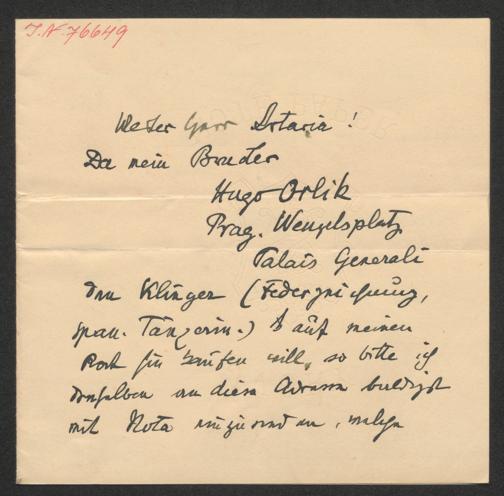 J.N. 76649
Werter Herr Artaria!
Da mein Bruder
Hugo Orlik
Prag. Wenzelsplatz
Palais Generali
den Klinger (Federzeichnung,
span. Tänzerin.) auf meinen
Rat hin kaufen will, so bitte ich
denselben an diese Adresse baldigst
mit Nota einzusenden, welche